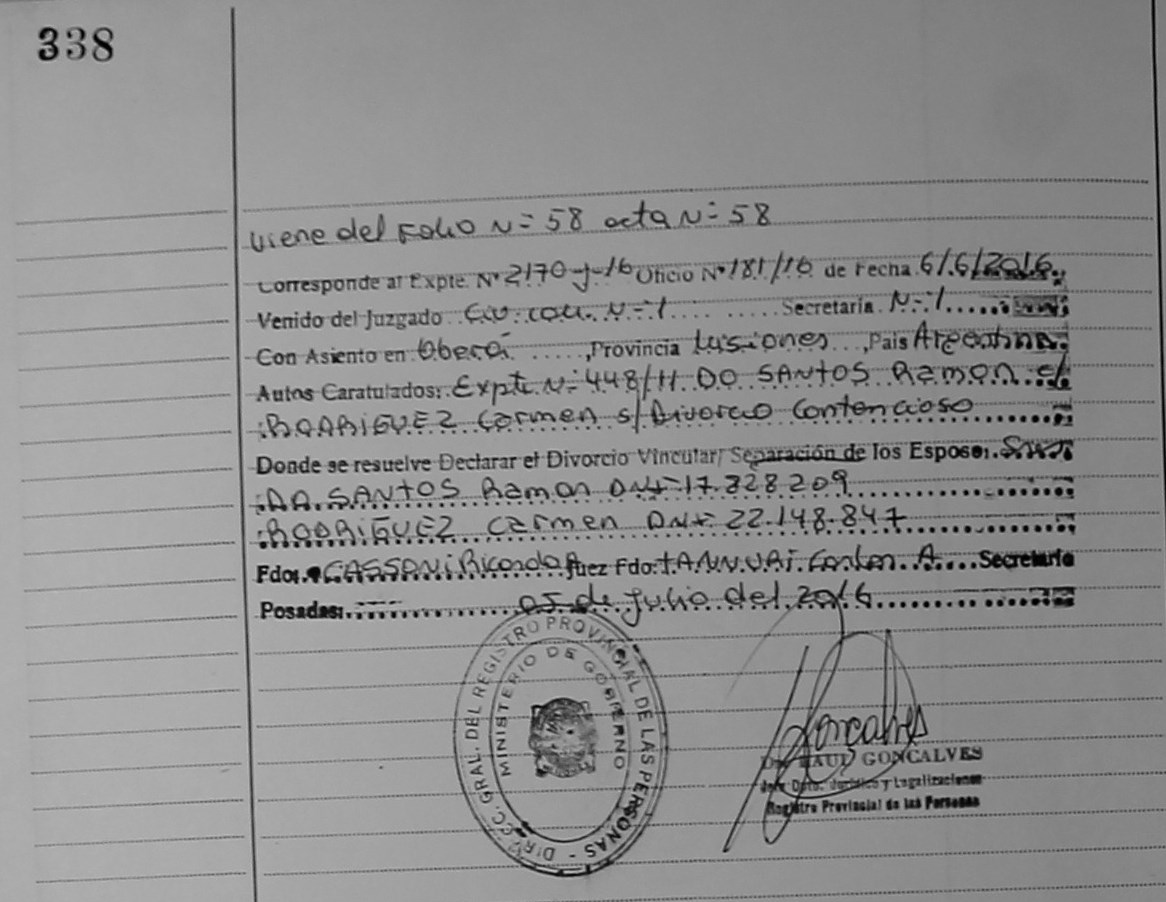 338
Viene del Folio N= 58 acta N= 58
Corresponde al Expte. Nº 2170-J-16 Oficio Nº 181/16 de Fecha 6/6/2016.
Venido del Juzgado Civ. com. N-1 Secretaría N-1
Con Asiento en Oberá, Provincia Misiones, País Argentina
Autos Caratulados: Expte N= 448/11 DO SANTOS Ramon c/
RODRIGUEZ Carmen s/ Divorcio Contencioso
Donde se resuelve Declarar el Divorcio Vincular/ Separación de los Esposos:
DO SANTOS Ramon DNI 17.328.209
RODRIGUEZ Carmen DNI 22.148.847
Fdo: CASSONI Ricardo Juez Fdo: TANNURI Carlos A. Secretario
Posadas: 05 de Julio del 2016
DIRECC. GRAL. DEL REGISTRO PROVINCIAL DE LAS PERSONAS -
MINISTERIO DE GOBIERNO
Goncalves
Dr. RAUL GONCALVES
Jefe Dpto. Jurídico y Legalizaciones
Registro Provincial de las Personas